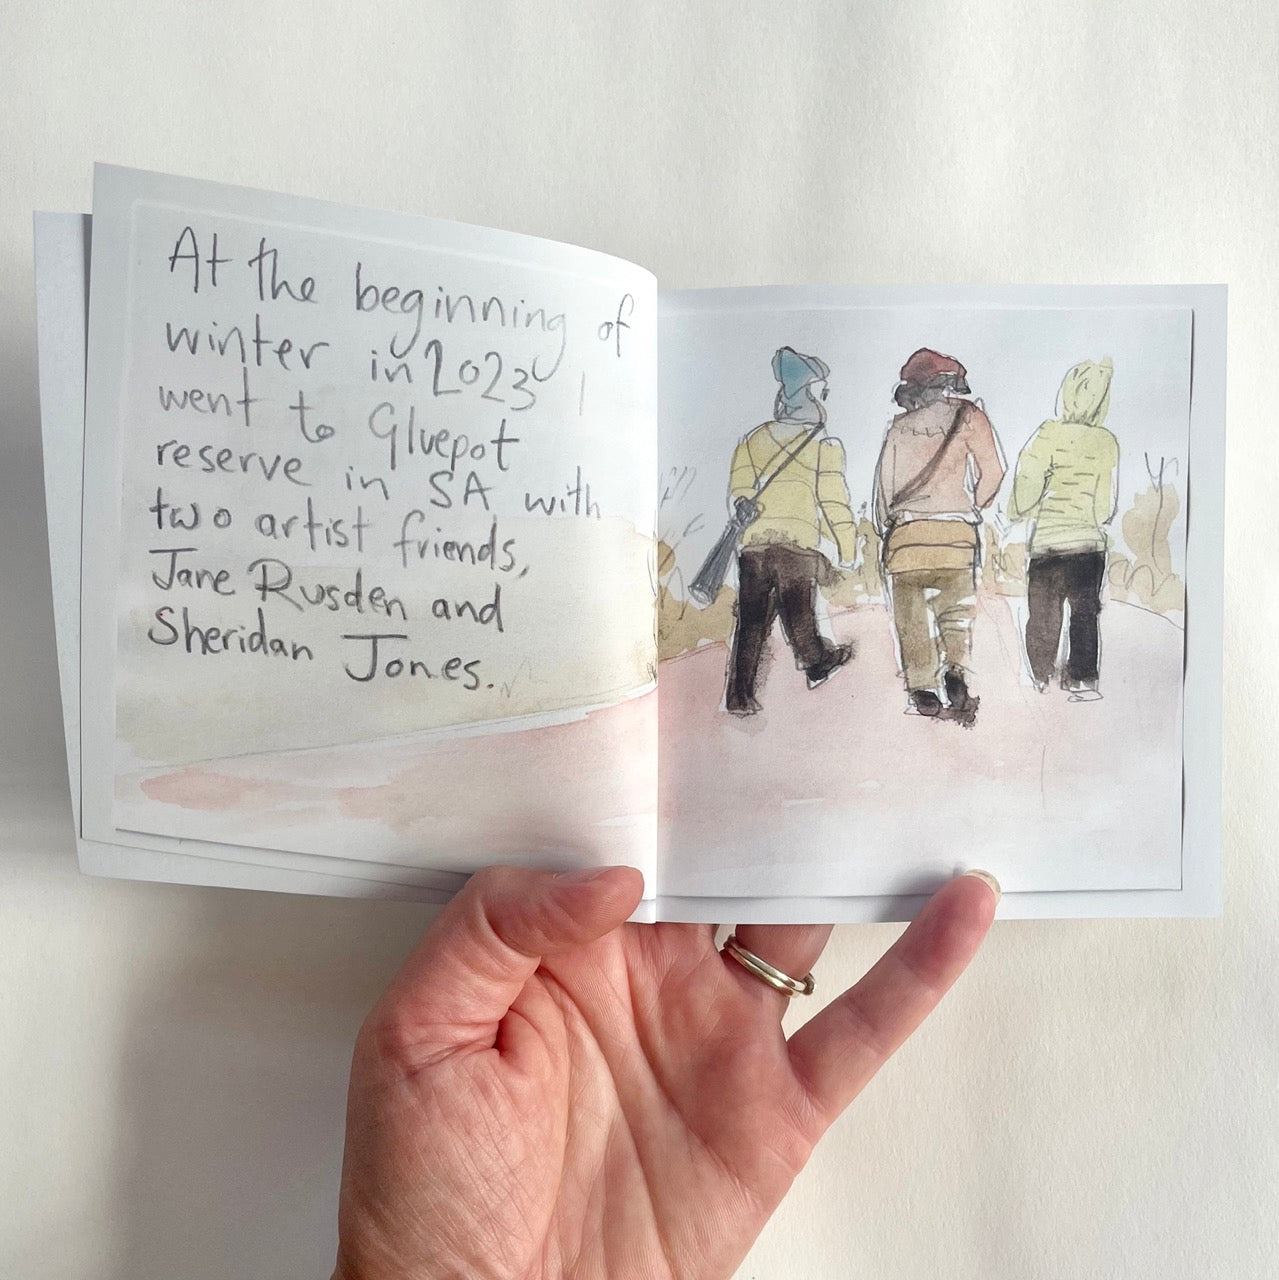 At the beginning of
winter in 2023 I
went to Gluepot
reserve in SA with
two artist friends,
Jane Rusden and
Sheridan Jones.